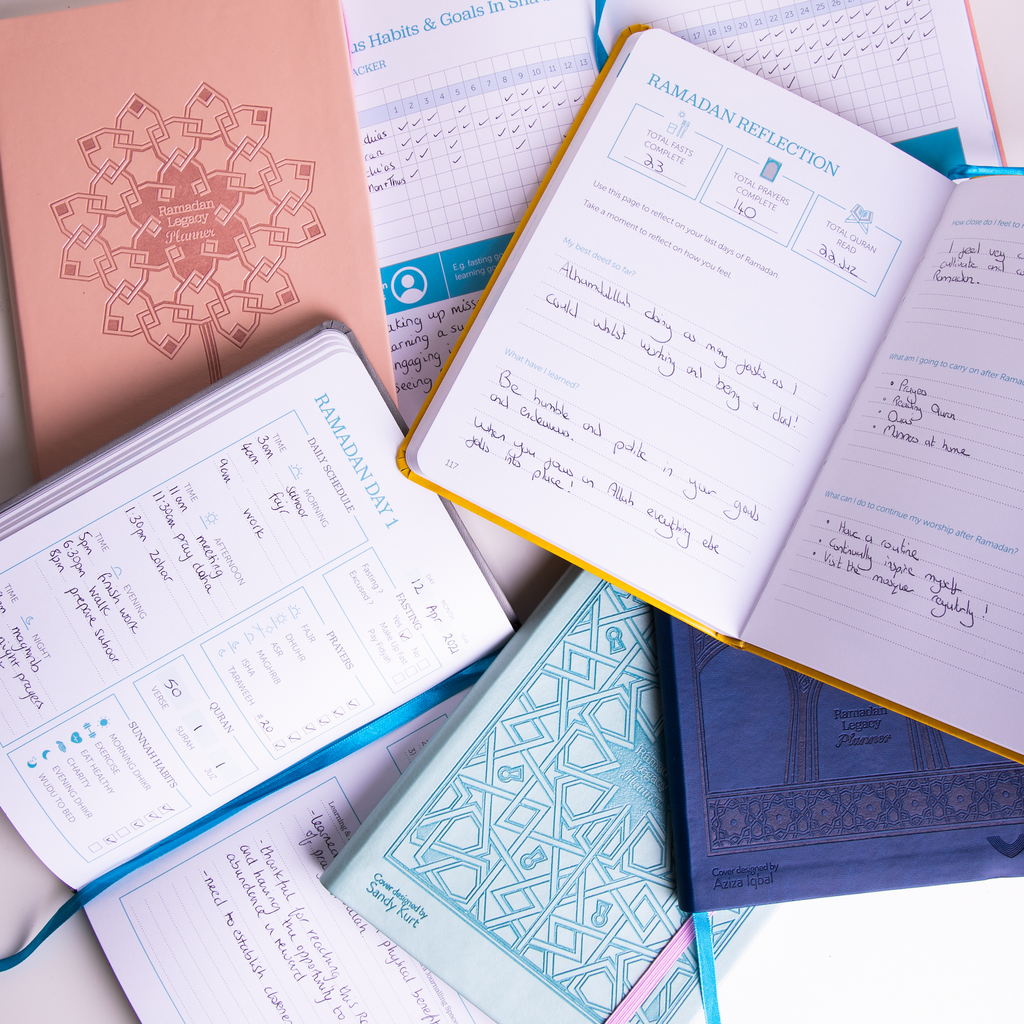 us Habits & Goals In Sha
ACKER
1 2 3 4 5 6 7 8 9 10 11 12 13
17 18 19 20 21 22 23 24 25 26 27 28 29 30
E.g. fasting
learning
Ramadan
Legacy
Planner
RAMADAN REFLECTION
TOTAL FASTS
COMPLETE
23
TOTAL PRAYERS
COMPLETE
140
TOTAL QURAN
READ
22 Juz
Use this page to reflect on your last days of Ramadan.
Take a moment to reflect on how you feel.
My best deed so far?
Alhamdulillah doing as many fasts as I
could whilst working and being a dad!
What have I learned?
Be humble and polite in your goals
and endeavours.
When you focus on Allah everything else
falls into place!
117
How close do I feel to
I feel very
cultivate and
Ramadan.
What am I going to carry on after Ramadan
• Prayers
• Reading Quran
• Duas
• Manners at home
What can I do to continue my worship after Ramadan?
• Have a routine
• Continually inspire myself
• Visit the mosque regularly!
RAMADAN DAY 1
12 Apr 2021
DAILY SCHEDULE
TIME MORNING
3am suhoor
4am fajr
9am work
TIME AFTERNOON
11am meeting
11:30am pray duha
1:30pm zuhar
TIME EVENING
5pm finish work
6:30pm walk
8pm prepare suhoor
TIME NIGHT
maghrib
night prayers
FASTING
Fasting? Yes No
Excused? Make Up Fast
Pay Fidyah
PRAYERS
FAJR
DHUHR
ASR
MAGHRIB
ISHA
TARAWEEH #20
QURAN
50 1 1
VERSE SURAH JUZ
SUNNAH HABITS
MORNING DHIKR
EXERCISE
EAT HEALTHY
CHARITY
EVENING DHIKR
WUDU TO BED
- thankful for reaching this
and having the opportunity to
abundence in reward
- need to establish closer
physical benefit
Cover designed by
Sandy Kurt
Ramadan
Legacy
Planner
Cover designed by
Aziza Iqbal